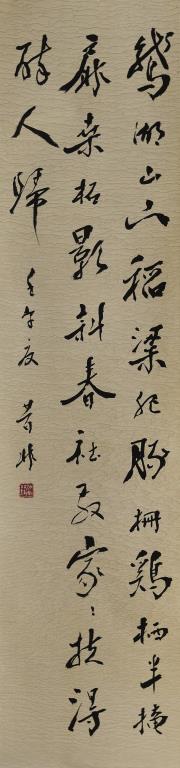 鵝湖山下稻梁肥豚柵鷄栖半掩
扉桑柘影斜春社散家〻扶得
醉人歸 壬午夏